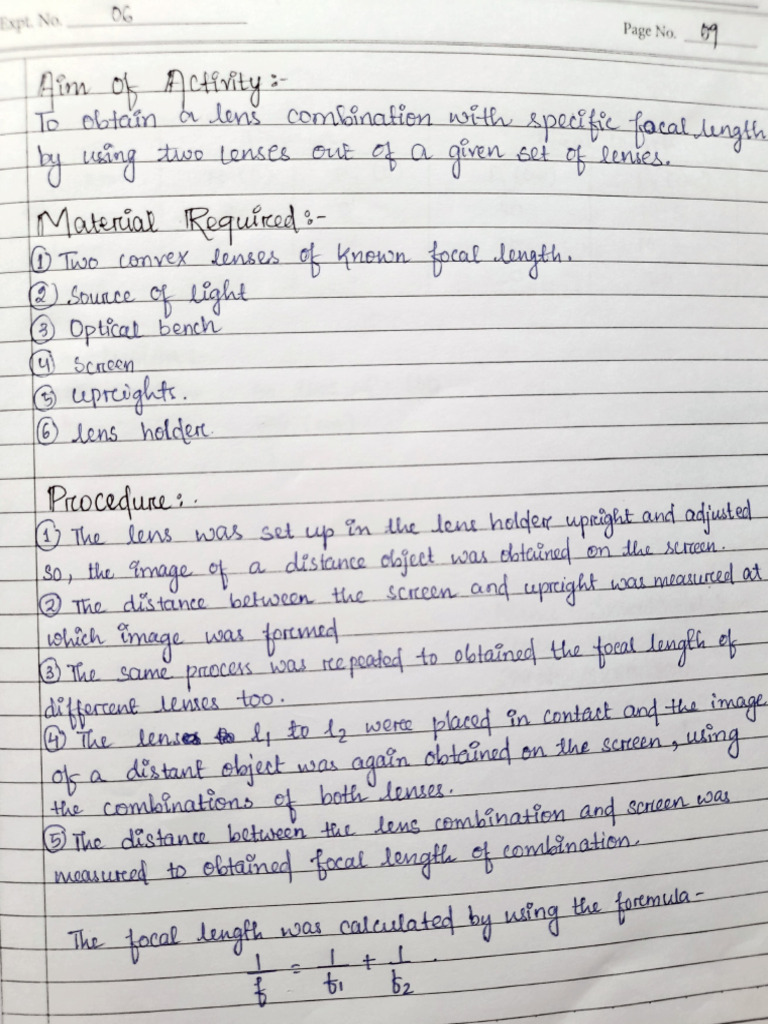 Expt. No. 06
Page No. 09
Aim of Activity :-
To obtain a lens combination with specific focal length
by using two lenses out of a given set of lenses.
Material Required :-
① Two convex lenses of known focal length.
② Source of light
③ Optical bench
④ Screen
⑤ uprights.
⑥ lens holder.
Procedure :.
① The lens was set up in the lens holder upright and adjusted
so, the image of a distance object was obtained on the screen.
② The distance between the screen and upright was measured at
which image was formed
③ The same process was repeated to obtained the focal length of
different lenses too.
④ The lenses l1 to l2 were placed in contact and the image
of a distant object was again obtained on the screen, using
the combinations of both lenses.
⑤ The distance between the lens combination and screen was
measured to obtained focal length of combination.
The focal length was calculated by using the formula -
1/f = 1/f1 + 1/f2